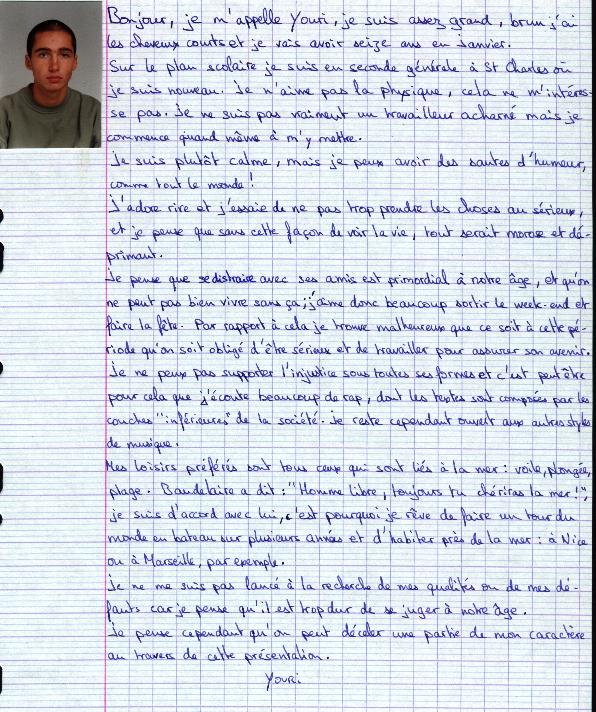 Bonjour, je m'appelle Youri, je suis assez grand, brun j'ai
les cheveux courts et je vais avoir seize ans en Janvier.
Sur le plan scolaire je suis en seconde générale à St Charles où
je suis nouveau. Je n'aime pas la physique, cela ne m'intéres-
se pas. Je ne suis pas vraiment un travailleur acharné mais je
commence quand même à m'y mettre.
Je suis plutôt calme, mais je peux avoir des sautes d'humeur,
comme tout le monde !
J'adore rire et j'essaie de ne pas trop prendre les choses au sérieux,
et je pense que sans cette façon de voir la vie, tout serait morose et dé-
primant.
Je pense que se distraire avec ses amis est primordial à notre âge, et qu'on
ne peut pas bien vivre sans ça ; j'aime donc beaucoup sortir le week-end et
faire la fête. Par rapport à cela je trouve malheureux que ce soit à cette pé-
riode qu'on soit obligé d'être sérieux et de travailler pour assurer son avenir.
Je ne peux pas supporter l'injustice sous toutes ses formes et c'est peut être
pour cela que j'écoute beaucoup de rap, dont les textes sont composés par les
couches "inférieures" de la société. Je reste cependant ouvert aux autres styles
de musique.
Mes loisirs préférés sont tous ceux qui sont liés à la mer : voile, plongée,
plage. Baudelaire a dit : "Homme libre, toujours tu chériras la mer !",
je suis d'accord avec lui, c'est pourquoi je rêve de faire un tour du
monde en bateau sur plusieurs années et d'habiter près de la mer : à Nice
ou à Marseille, par exemple.
Je ne me suis pas lancé à la recherche de mes qualités ou de mes dé-
fauts car je pense qu'il est trop dur de se juger à notre âge.
Je pense cependant qu'on peut déceler une partie de mon caractère
au travers de cette présentation.
Youri